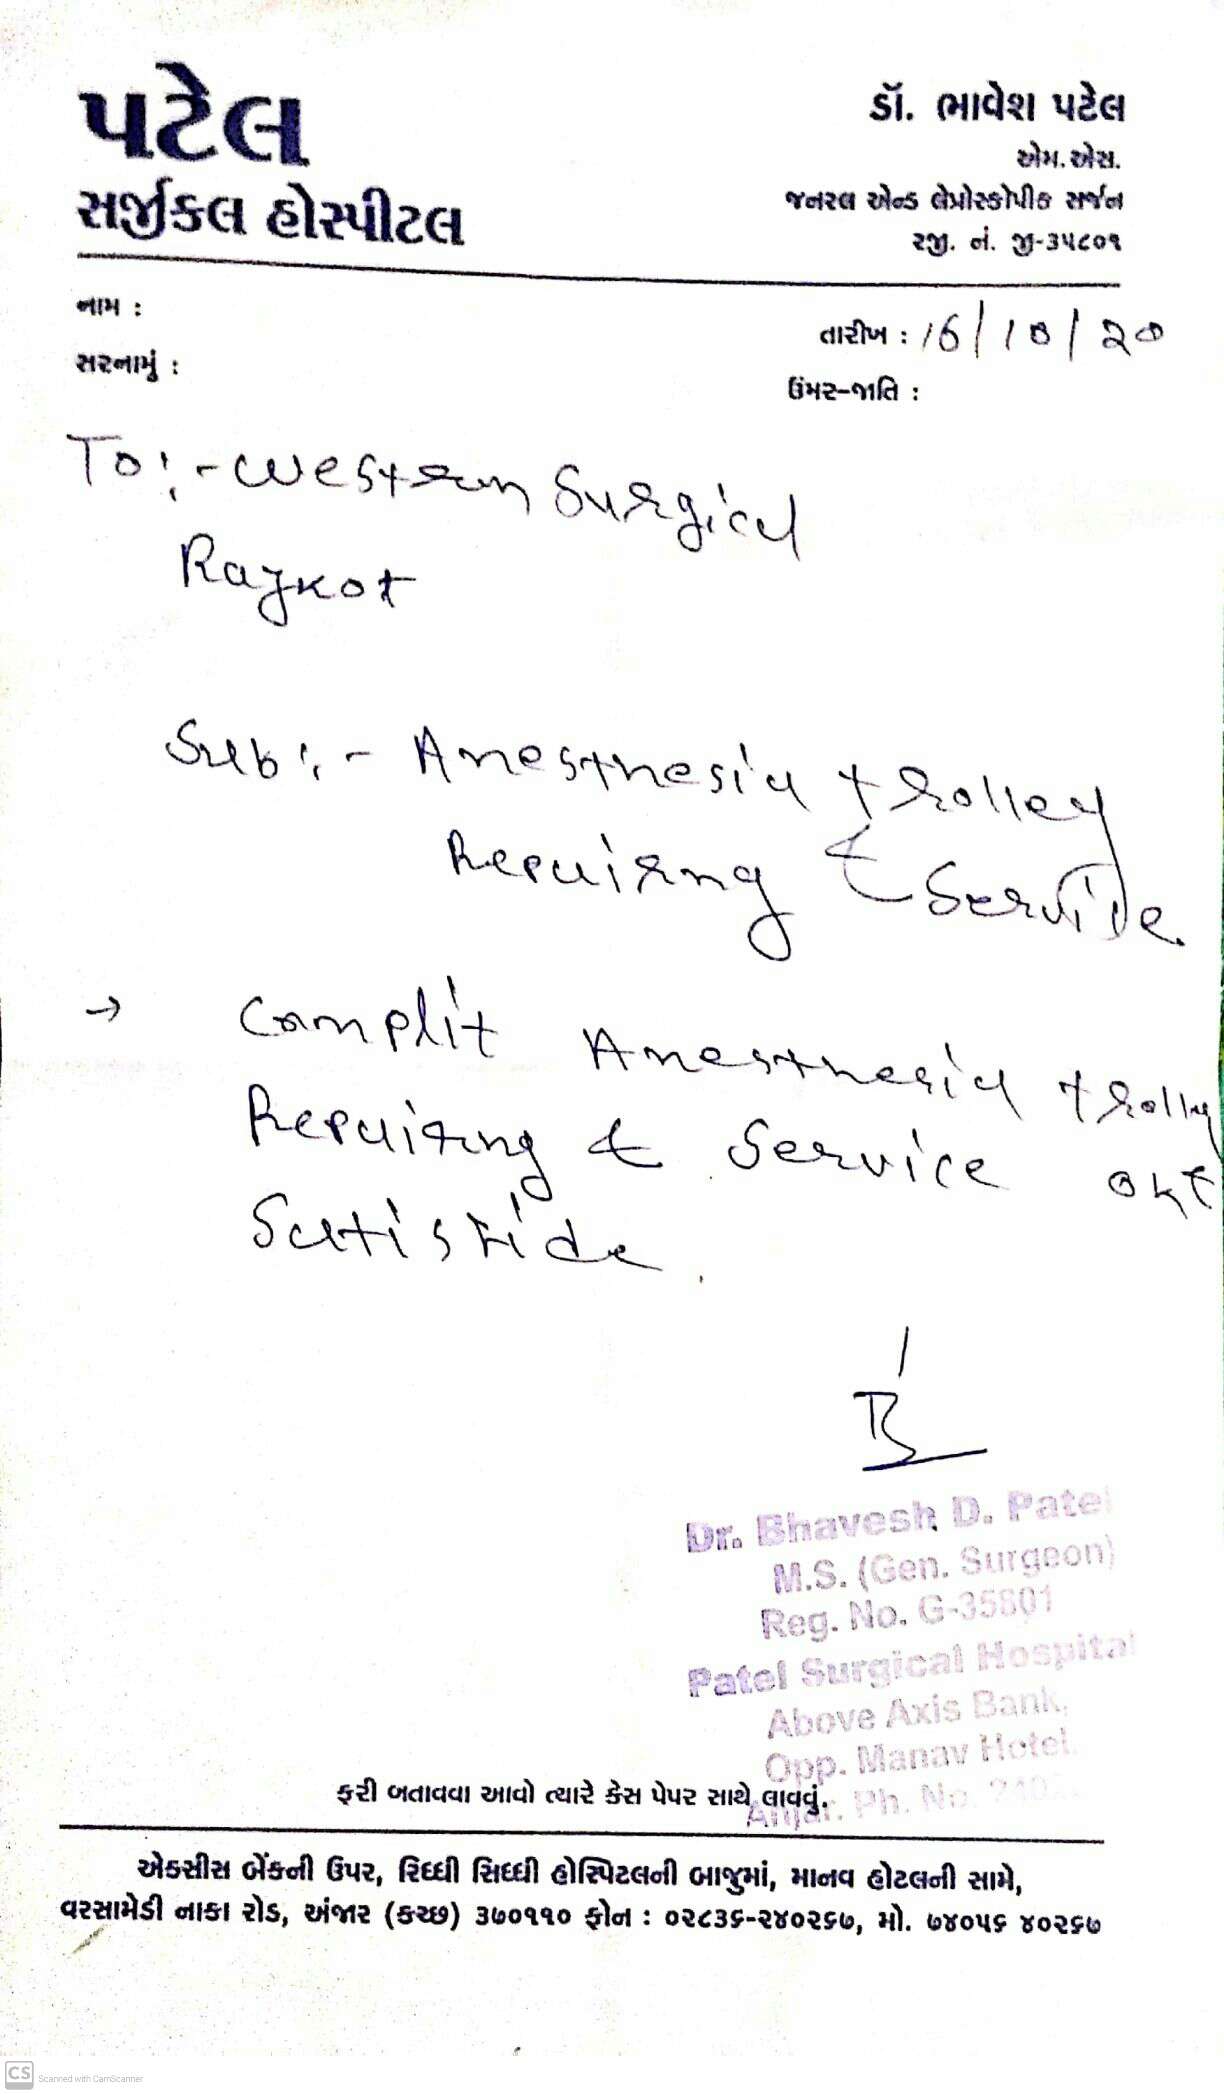 પટેલ
સર્જીકલ હોસ્પીટલ
ડૉ. ભાવેશ પટેલ
એમ.એસ.
જનરલ એન્ડ લેપ્રોસ્કોપીક સર્જન
રજી. નં. જી-૩૫૮૦૧
નામ :
તારીખ : 16/10/20
સરનામું :
ઉંમર-જાતિ :
To:- Western Surgical
Rajkot
Sub:- Anesthesia trolley
Repairng & Service
→ Complit Anesthesia trolly
Repairing & Service ok &
Satisfide.
Dr. Bhavesh D. Patel
M.S. (Gen. Surgeon)
Reg. No. G-35801
Patel Surgical Hospital
Above Axis Bank,
Opp. Manav Hotel.
Anjar. Ph. No.
ફરી બતાવવા આવો ત્યારે કેસ પેપર સાથે લાવવું.
એક્સીસ બેંકની ઉપર, રિધ્ધી સિધ્ધી હોસ્પિટલની બાજુમાં, માનવ હોટલની સામે,
વરસામેડી નાકા રોડ, અંજાર (કચ્છ) ૩૭૦૧૧૦ ફોન : ૦૨૮૩૬-૨૪૦૨૬૭, મો. ૭૪૦૫૬ ૪૦૨૬૭
CS Scanned with CamScanner